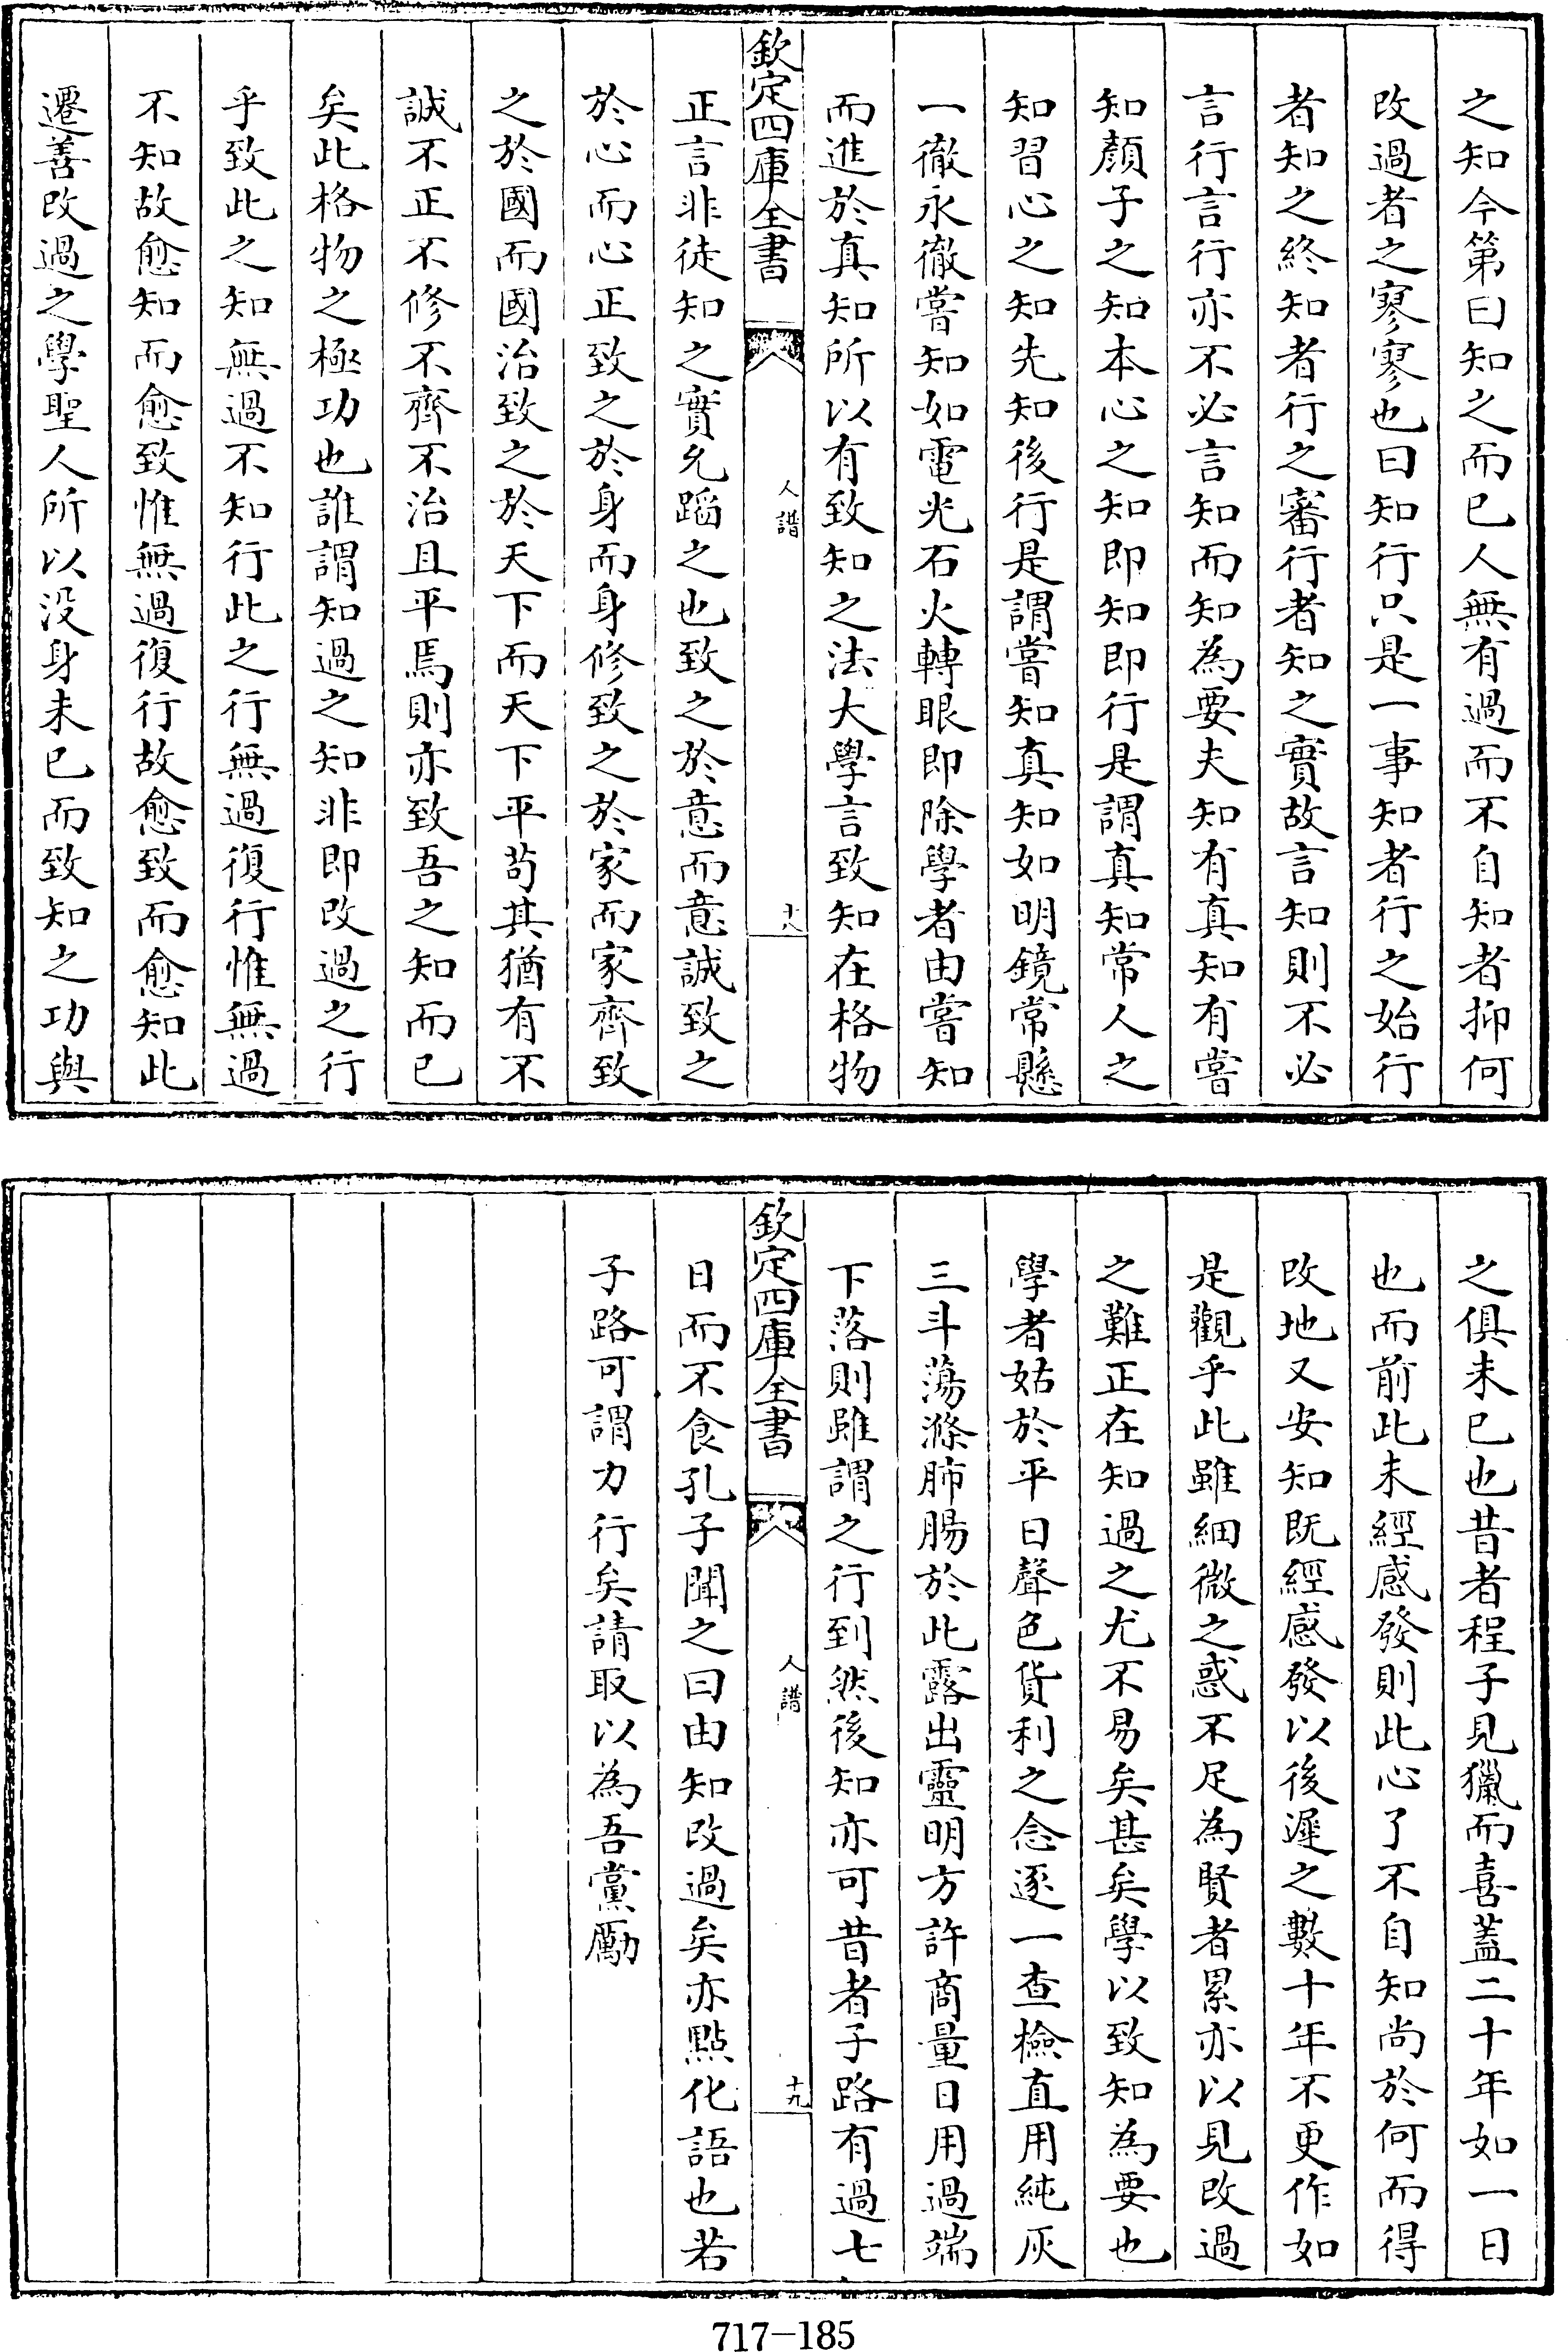 之知今第曰知之而已人無有過而不自知者抑何
改過者之寥寥也曰知行只是一事知者行之始行
者知之終知者行之審行者知之實故言知則不必
言行言行亦不必言知而知為要夫知有真知有嘗
知顏子之知本心之知即知即行是謂真知常人之
知習心之知先知後行是謂嘗知真知如明鏡常懸
一徹永徹嘗知如電光石火轉眼即除學者由嘗知
而進於真知所以有致知之法大學言致知在格物
欽定四庫全書
人譜
十八
正言非徒知之實允蹈之也致之於意而意誠致之
於心而心正致之於身而身修致之於家而家齊致
之於國而國治致之於天下而天下平苟其猶有不
誠不正不修不齊不治且平焉則亦致吾之知而已
矣此格物之極功也誰謂知過之知非即改過之行
乎致此之知無過不知行此之行無過復行惟無過
不知故愈知而愈致惟無過復行故愈致而愈知此
遷善改過之學聖人所以没身未已而致知之功與
之俱未已也昔者程子見獵而喜蓋二十年如一日
也而前此未經感發則此心了不自知尚於何而得
改地又安知既經感發以後遲之數十年不更作如
是觀乎此雖細微之惑不足為賢者累亦以見改過
之難正在知過之尤不易矣甚矣學以致知為要也
學者姑於平日聲色貨利之念逐一查檢直用純灰
三斗蕩滌肺腸於此露出靈明方許商量日用過端
下落則雖謂之行到然後知亦可昔者子路有過七
欽定四庫全書
人譜
十九
日而不食孔子聞之曰由知改過矣亦點化語也若
子路可謂力行矣請取以為吾黨勵
717-185